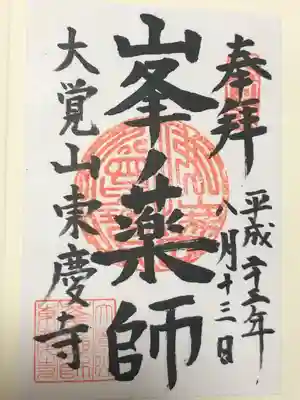 奉拝
平成二十二年
八月十三日
峯ノ薬師
大覚山東慶寺